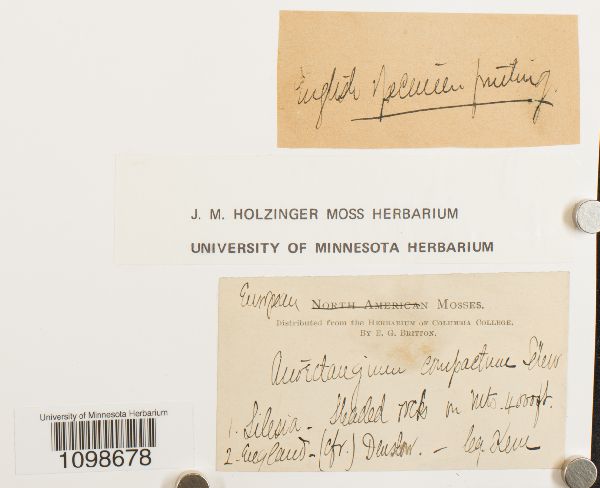 English specimen fruiting.
J. M. HOLZINGER MOSS HERBARIUM
UNIVERSITY OF MINNESOTA HERBARIUM
European NORTH AMERICAN MOSSES,
Distributed from the HERBARIUM OF COLUMBIA COLLEGE,
BY E. G. BRITTON.
Anoectangium compactum
1. Silesia - Shaded rocks on Mts. 4000 ft.
2. England - (cfr.) - leg.
University of Minnesota Herbarium
1098678